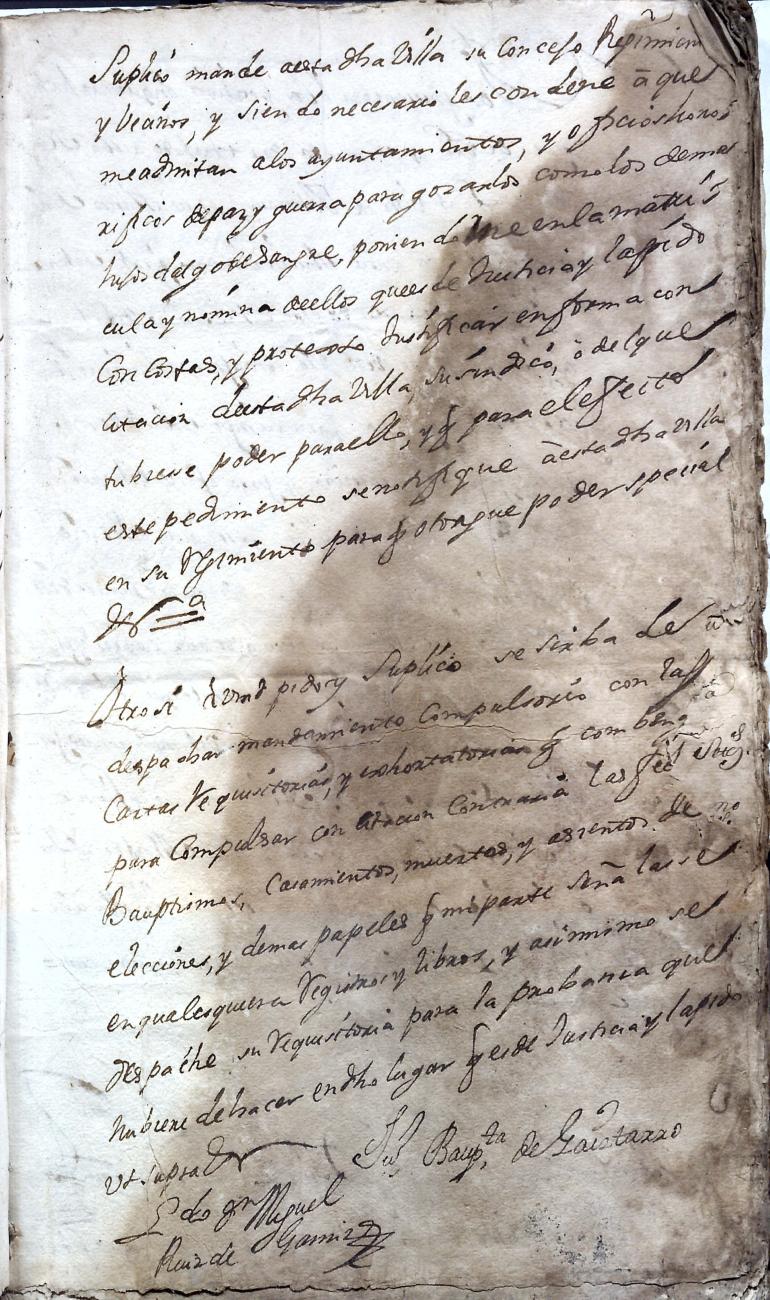 Suplico mande aesta dha Villa su Concejo Regimien
y Vecinos, y siendo necesario les condene ā que
me admitan alos ayuntamientos, y oficios hono
rificos depaz y guerra para gozarlos como los demas
hijos dalgo de sangre, poniendome enla matri
cula y nómina deellos que es de Justicia y la pido
Con Costas, y protesto Justificar en forma con
citacion deesta dha Villa, su sindicó, ò del que
tubiese poder paraello, y q para el efecto
este pedimiento se notifique àesta dha Villa
en su Regimiento para q otorgue poder special
Otrosi à Vmd pido y Suplico se sirba de
despachar mandamiento Compulsorio con las
Cartas Requisitorias, y exhortatorias q combeng
para Compulsar con citacion Contraria las
Bauptismos, Casamientos, muertos, y asientos de
elecciónes, y demas papeles q mi parte señalase
en qualesquiera Registros y libros, y asimmimo se
despache su Requisitoria para la probanza que
hubiere dehacer en dho lugar q es de Justicia y la pido
Vt supra
Jn Baupta de Gaistarro
Ldo Dn Miguel
Ruiz de Gamiz